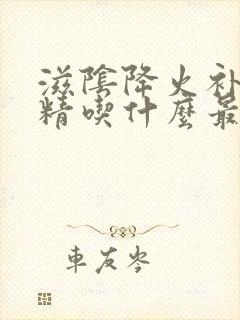 滋陰降火补
精喫什麽最
車友岑